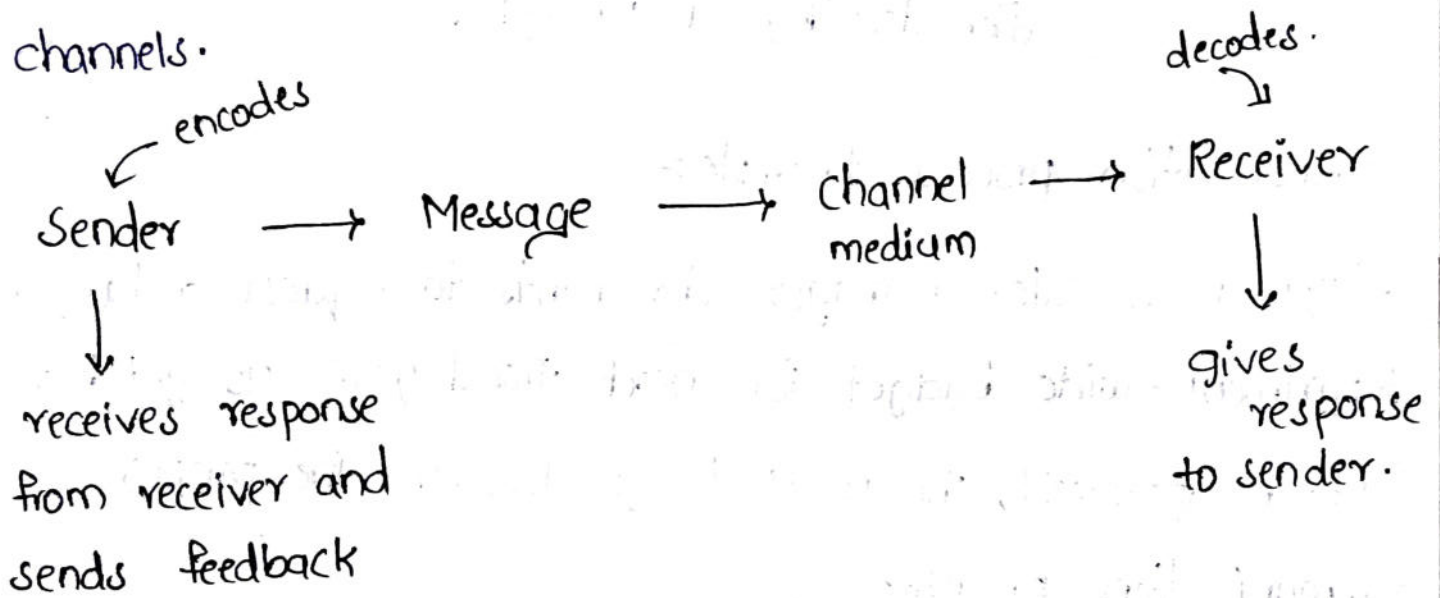 channels.
decodes.
encodes
Sender → Message → Channel → Receiver
medium
receives response
from receiver and
sends feedback
gives
response
to sender.